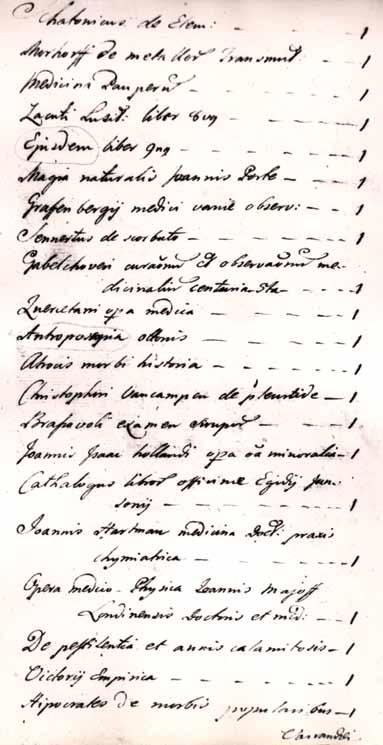 Chatonicus de Elem: - - - 1
Morhorff de metallor Transmut: - - - 1
Medicina Pauperũ - - - 1
Zacuti Lusit: liber - - - 1
Ejusdem liber - - - 1
Magia naturalis Joannis Porte - - - 1
Grafenbergij medici varie observ: - - - 1
Sennertus de scorbuto - - - 1
Gabelchoveri et me-
dicinaliũ centuria - - - 1
Quercetani opa medica - - - 1
ottonis - - - 1
Atrocis morbi historia - - - 1
Christophini Vancampen de pleuritide - 1
Brasavoli examen - - - 1
Joannis Isaac hollandi opa minoralia - 1
Cathalogus libror officinæ Egidij Jan-
sonij - - - 1
Joannis Hartman medicina Doct: praxis
chymiatrica - - - 1
Opera medico-Physica Joannis Majoff
Londinensis Doctoris et med: - - 1
De pestilentia et annis calamitosis - - 1
Victorij Empirica - - - 1
Hipocrates de morbis popularibus - 1